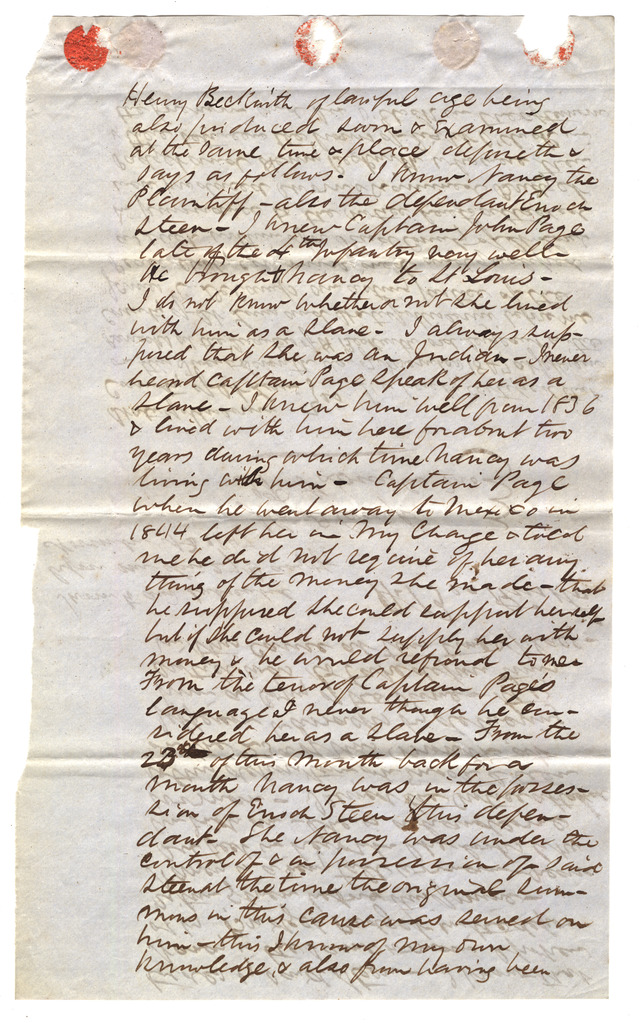 Henry Beckwith of lawful age being
also produced sworn & Examined
at the same time & place deposeth &
says as follows - I know Nancy the
Plaintiff - also the defendant Enoch
Steen - I knew Captain John Page
late of the 4th Infantry very well -
He brought Nancy to St Louis -
I do not know whether or not she lived
with him as a slave - I always sup-
posed that she was an Indian - I never
heard Captain Page speak of her as a
slave - I knew him well from 1836
& lived with him here for about two
years during which time Nancy was
living with him - Captain Page
when he went away to Mexico in
1844 left her in my charge & told
me he did not require of her any
thing of the money she made - that
he supposed she could support herself
but if she could not supply her with
money & he would refund to me
From the tenor of Captain Pages
language I never though he con-
sidered her as a slave - From the
23rd of this Month back for a
month Nancy was in the posses-
sion of Enoch Steen this defen-
dant - She Nancy was under the
control of & in possession of said
Steen at the time the original sum-
mons in this cause was served on
him - this I know of my own
knowledge & also from having been